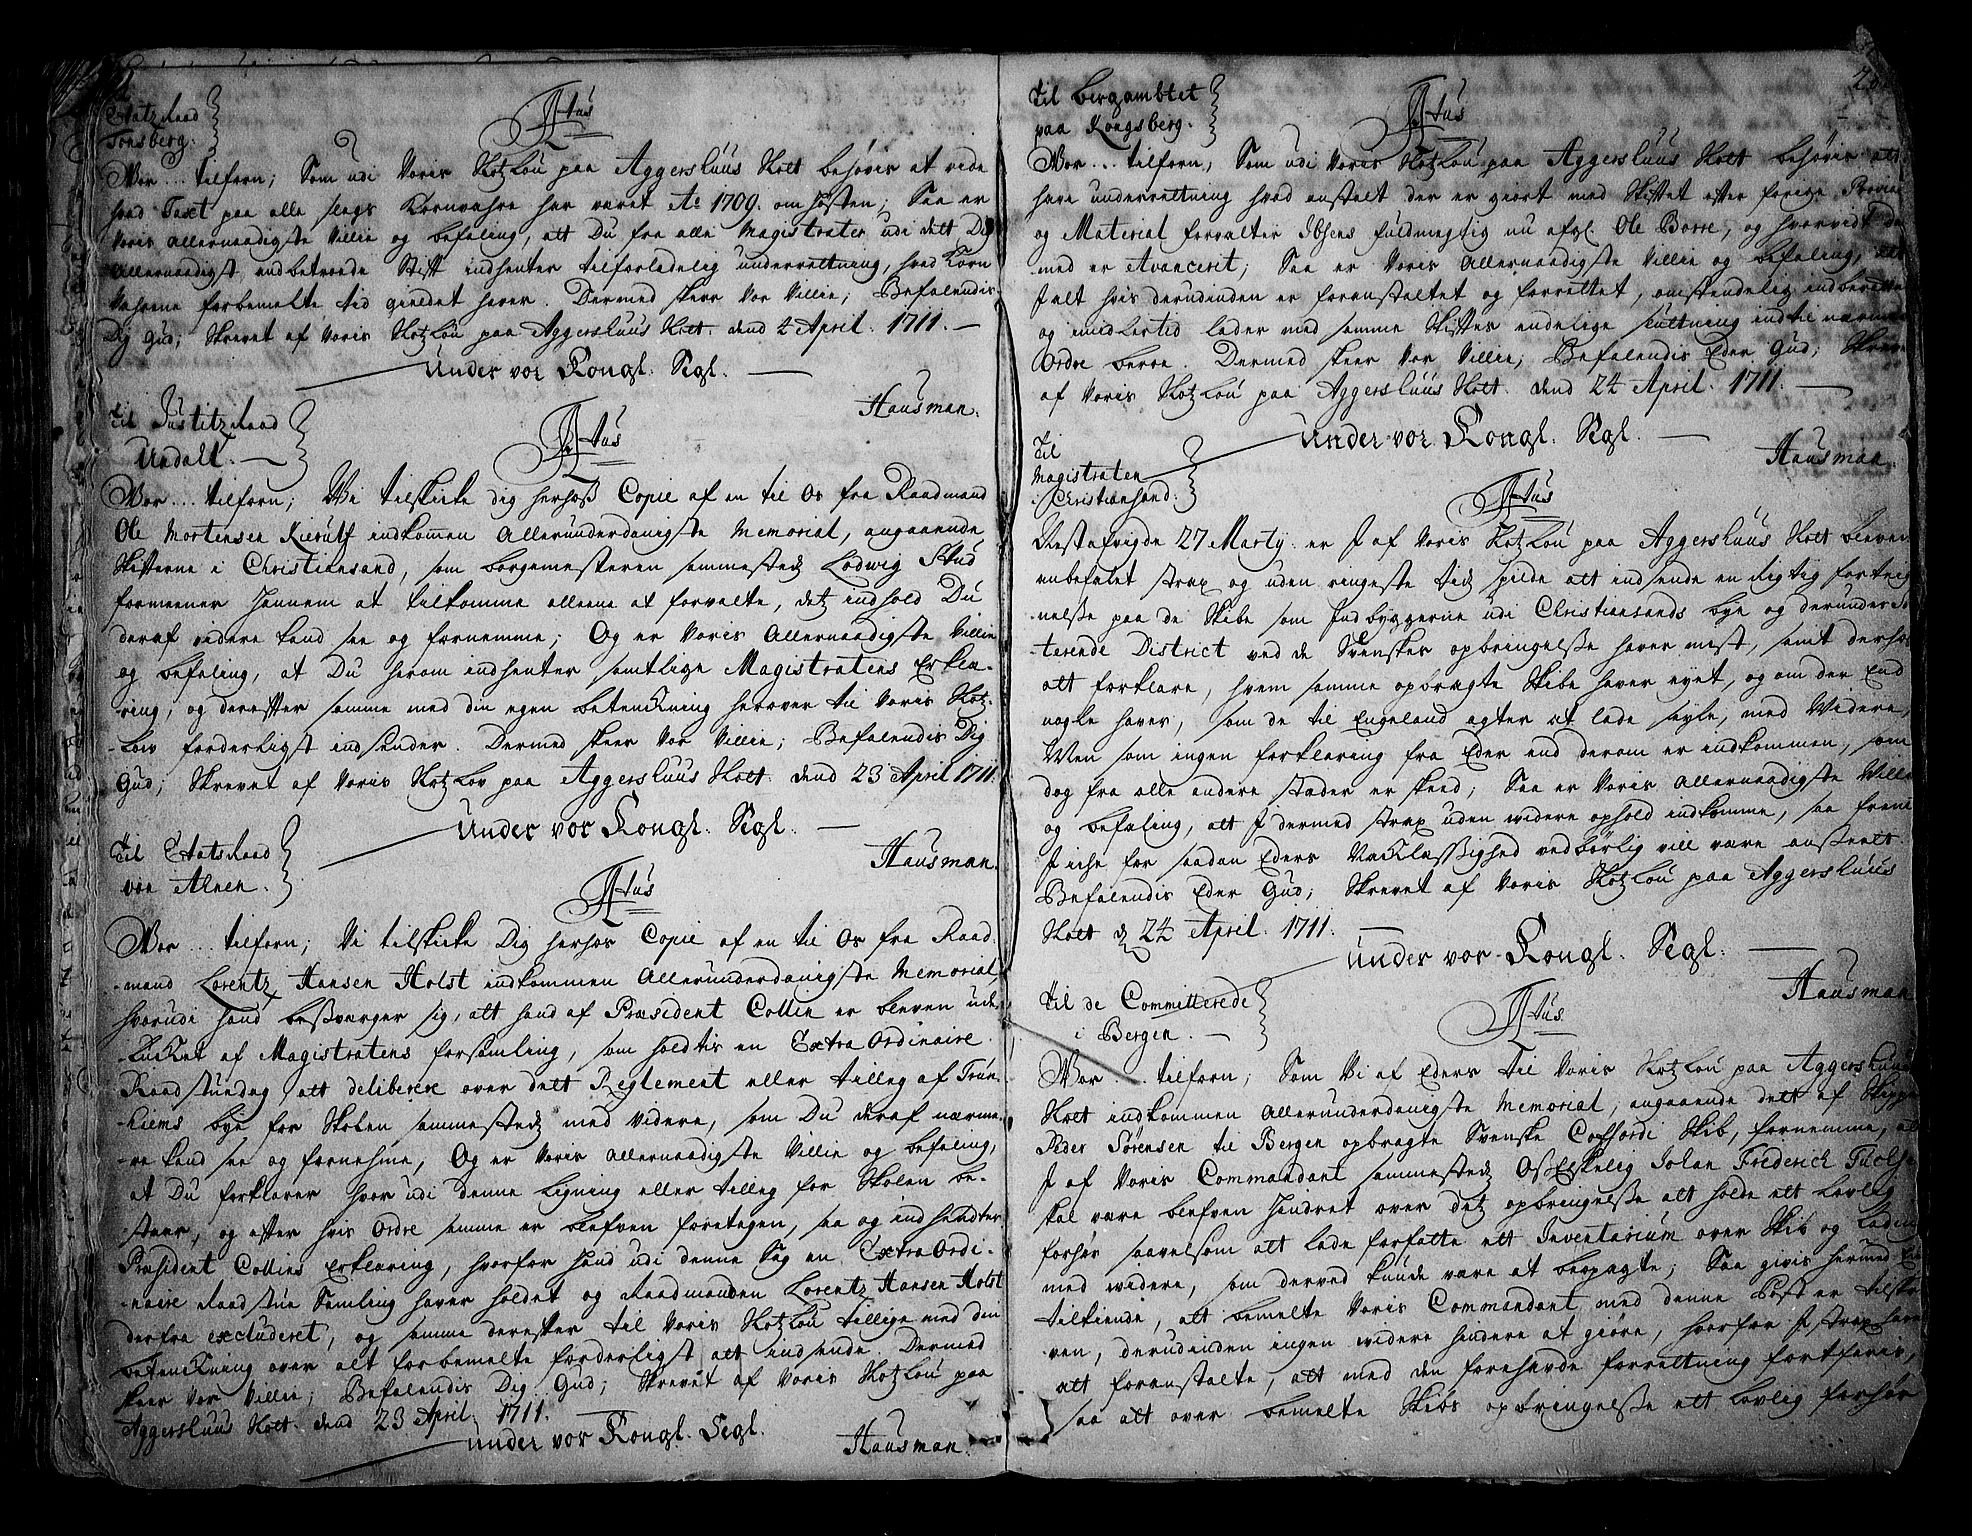 Etatz Raad
Tonsberg.
Wor... tilforn; Som udi Voris Slotzlou paa Aggershuus Slott behøves at vide
hvad Taxt paa alle slags Kornvahre har været Ao 1709. om høsten; Saa er
Voris Allernaadigste Villie og befaling, att Du fra alle Magistrater udi dett Dig
Allernaadigst anbetroede Stift indhenter tilforladelig underrettning, hvad Korn
Vahrene forbemelte tid gieldet hafver. Dermed skeer Vor Villie; Befalendis
Dig Gud; Skrevet af Voris Slotzlou paa Aggershuus Slott. dend 4 April. 1711.
Under vor Kongl. Segl.
Hausman.
Til Justitz Raad
Undall.
Wor... tilforn; Wi tilskicke Dig herhoß Copie af en til Os fra Raadmand
Ole Mortensen Kierulf indkommen Allerunderdanigste Memorial, angaaende
Skifterne i Christiansand, som borgemesteren sammestedz Lodwig Stud
formeener hannem at tilkomme alleene at forvalte, detz indhold Du
deraf videre kand see og fornemme; Og er Voris Allernaadigste Villie
og befaling, at Du herom indhenter samtlige Magistratens Erklæ-
-ring, og derefter samme med din egen betenckning herover til Voris Slotz-
-lov forderligst indsender. Dermed skeer Vor Villie; Befalendis Dig
Gud; Skrevet af Voris Slotzlov paa Aggershuus Slott. dend 23 April 1711.
Under vor Kongl. Segl.
Hausman.
Til Etats Raad
von Ahnen.
Wor... tilforn; Vi tilskicke Dig herhos Copie af en til Os fra Raad-
-mand Lorentz Hansen Holst indkommen Allerunderdanigste Memorial,
hvorudi hand besværger sig, att hand af Præsident Collin er bleven ude-
-lucket af Magistratens forsamling, som holdtis en Extra Ordinaire
Raadstuedag att deliberere over dett Reglement eller tilleg af Trun-
-hiems bye for Skolen sammestedz med videre, som Du deraf nærme-
-re kand see og fornehme, Og er Voris Allernaadigste Villie og befaling,
at Du forklarer hvor udi denne Ligning eller tilleg for Skolen be-
-staar, og efter hvis Ordre samme er blefven foretagen, saa og indhendter
Præsident Collins Erklæring, hvorfor hand udi denne Sag en Extra Ordi-
-naire Raadstue Samling haver holdet og Raadmanden Lorentz Hansen Holst
derfra excluderet, og samme derefter til Voris Slotzlou tillige med din
betenckning over alt forbemelte forderligst att indsende. Dermed
skeer Vor Villie; Befalendis Dig Gud; Skrevet af Voris Slotzlou paa
Aggershuus Slott. dend 23 April. 1711.
Under vor Kongl. Segl.
Hausman.
Til Bergambtet
paa Kongsberg.
Wor... tilforn; Som udi Voris Slotzlou paa Aggershuus Slott behøvis att
have underrettning hvad anstalt der er giort med Skiftet efter forrige Provia
og Material forvalter Ibsens fuldmegtig nu afgl. Ole Borre, og hvorvidt der
med er Avancerit; Saa er Voris Allernaadigste Villie og befaling, att
I alt hvis derudinden er foranstaltet og forrettet, omstendelig indberette
og imidlertid lader med samme Skiftes endelige sluttning indtil nærmere
Ordre beroe. Dermed skeer Vor Villie; Befalendis Eder Gud; Skrev
af Voris Slotzlou paa Aggershuus Slott. dend 24 April. 1711.
Under vor Kongl. Segl.
Hausman.
Til
Magistraten
i Christiansand.
Nestafvigde 27 Martÿ er I af Voris Slotzlou paa Aggershuus Slott bleven
anbefalet strax og uden ringeste tids spilde att indsende en Rigtig forteig
-nelse paa de Skibe som Indbyggerne udi Christiansands bye og derunder So
-terende District ved de Svenskes opbringelse haver mist, samt derhos
att forklare, hvem samme opbragte Skibe haver eyet, og om der End
nogle haves, som de til Engeland agter at lade seyle, med Widere,
Men som ingen forklaring fra Eder end derom er indkommen, som
dog fra alle andre stæder er skeed; Saa er Voris Allernaadigste Villie
og befaling, att I dermed strax uden widere ophold indkomme, saa fremt
I iche for saadan Eders Nachlæssighed vedbørlig vill være anseedt
Befalendis Eder Gud; Skrevet af Voris Slotzlou paa Aggershuus
Slott d 24 April. 1711.
Under vor Kongl. Segl.
Hausman
Til de Committerede
i Bergen.
Wor... tilforn; Som Vi af Eders til Voris Slotzlou paa Aggershuus
Slott indkommen Allerunderdanigste Memorial, angaaende dett af Skipper
Peder Sørensen til Bergen opbragte Svenske Coffardi Skib, fornemme, at
I af Voris Commandant sammestedz Os Elskelig Johan Frederich
skal være blefven hindret over det opbringelse att holde ett lovlig
forhør saavelsom att lade forfatte ett Inventarium over Skib og Ladn
med widere, som derved kunde være at beopagte; Saa givis hermed
tilkiende, att bemelte Voris Commandant, med denne Post er tilskre
-ven, derudinden ingen widere hindere at giøre, hvorfor I strax have
att foranstalte, att med den forehavde forrettning fortfares,
saa att over bemelte Skibs opbringelse ett lovlig forhør